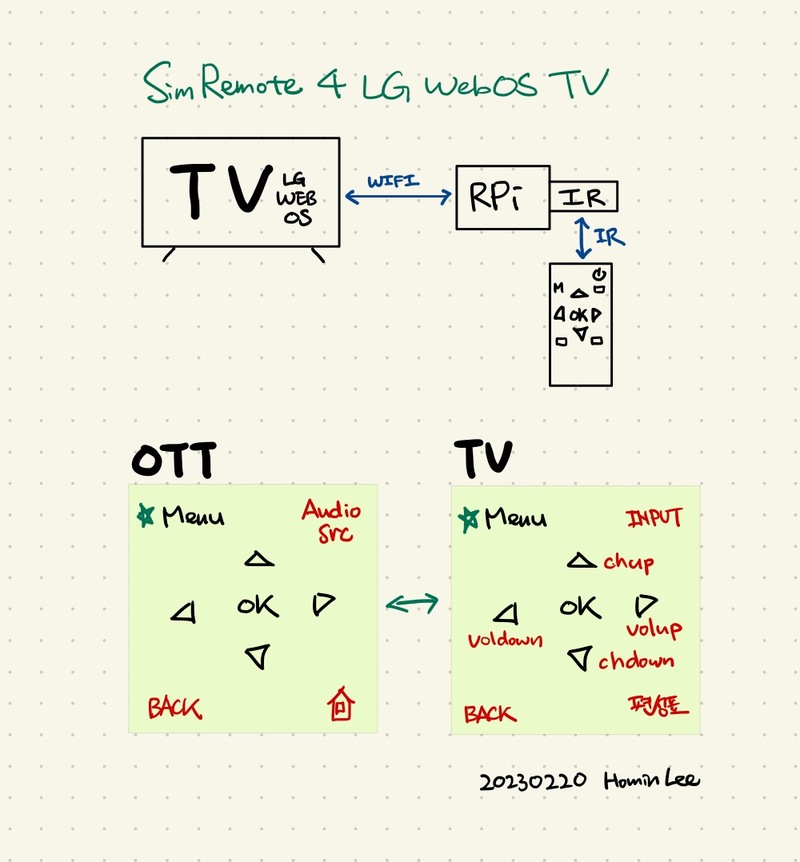 SimRemote 4 LG WebOS TV
TV LG
WEB
OS
WIFI
RPi
IR
IR
M
OK
OTT
Menu
Audio
Src
OK
BACK
TV
Menu
INPUT
chup
OK
voldown
volup
chdown
BACK
편성표
20230220 Homin Lee